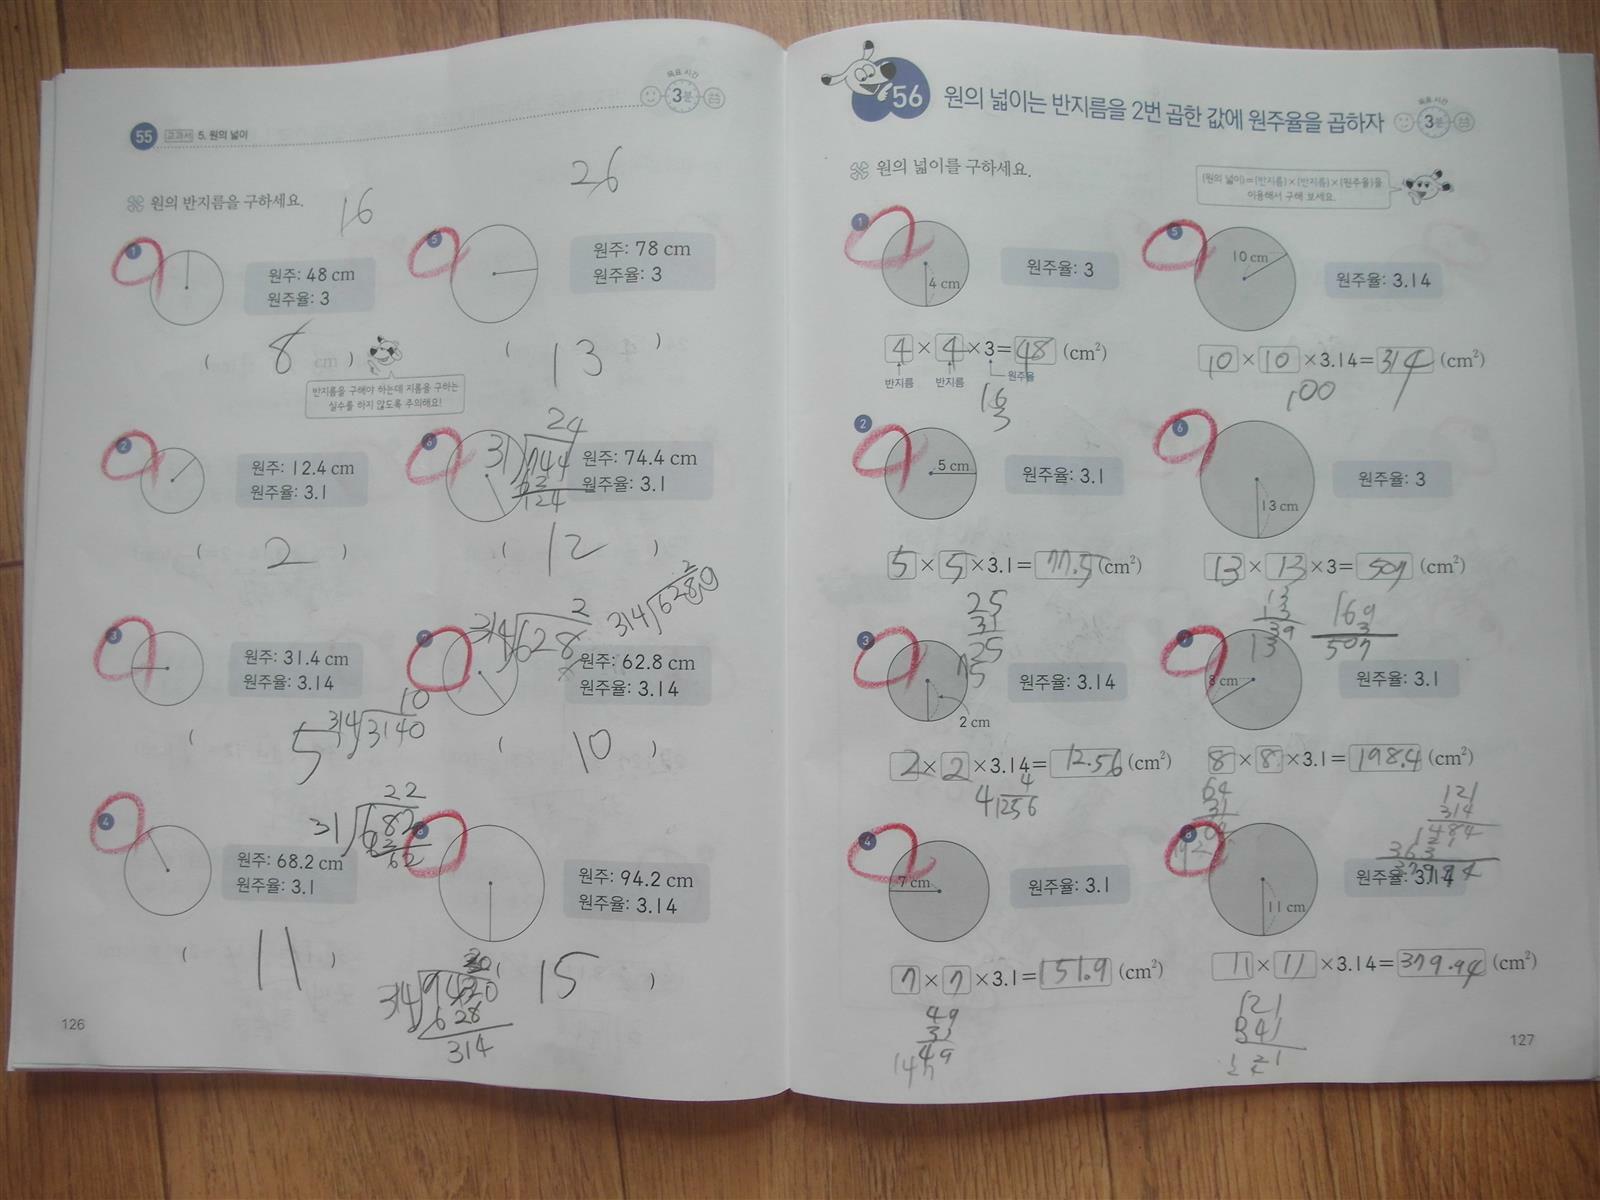 목표 시간
3분
55 교과서 5. 원의 넓이
원의 반지름을 구하세요.
16
26
1
원주: 48 cm
원주율: 3
( 8 cm )
반지름을 구해야 하는데 지름을 구하는
실수를 하지 않도록 주의해요!
5
원주: 78 cm
원주율: 3
( 13 )
2
원주: 12.4 cm
원주율: 3.1
( 2 )
6
24
31 744
62
124
원주: 74.4 cm
원주율: 3.1
( 12 )
3
원주: 31.4 cm
원주율: 3.14
10
314 3140
( 5
7
2
314 628
2
314 6280
원주: 62.8 cm
원주율: 3.14
( 10 )
4
원주: 68.2 cm
원주율: 3.1
22
31 682
62
62
( 11 )
8
원주: 94.2 cm
원주율: 3.14
314 9420
628
314
15 )
126
56 원의 넓이는 반지름을 2번 곱한 값에 원주율을 곱하자
목표 시간
3분
원의 넓이를 구하세요.
(원의 넓이)=(반지름)×(반지름)×(원주율)을
이용해서 구해 보세요.
1
4 cm
원주율: 3
4 × 4 ×3= 48 (cm²)
반지름 반지름 원주율
16
3
5
10 cm
원주율: 3.14
10 × 10 ×3.14= 314 (cm²)
100
2
5 cm
원주율: 3.1
5 × 5 ×3.1= 77.5 (cm²)
25
31
25
75
6
13 cm
원주율: 3
13 × 13 ×3= 507 (cm²)
13
13
39
13
169
3
507
3
2 cm
원주율: 3.14
2 × 2 ×3.14= 12.56 (cm²)
4
4 1256
7
8 cm
원주율: 3.1
8 × 8 ×3.1= 198.4 (cm²)
64
31
64
4
7 cm
원주율: 3.1
7 × 7 ×3.1= 151.9 (cm²)
49
31
49
147
8
11 cm
원주율: 3.14
121
314
484
121
363
37994
11 × 11 ×3.14= 379.94 (cm²)
121
341
121
127